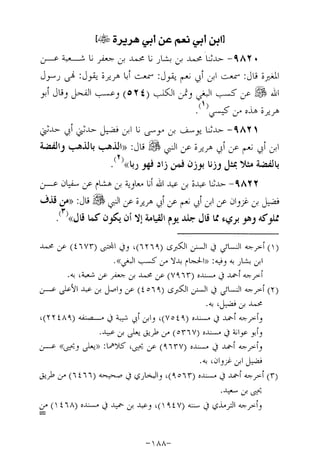 [ابن أبي نعم عن أبي هريرة ﷺ]
٩٨٢٠- حدثنا محمد بن بشار نا محمد بن جعفر نا شـــعبة عـــن
المغيرة قال: سمعت ابن أبي نعم يقول: سمعت أبا هريرة يقول: نهى رسول
الله ﷺ عن كسب البغي وثمن الكلب (٥٢٤) وعسب الفحل وقال أبو
هريرة هذه من كيسي(١).
٩٨٢١- حدثنا يوسف بن موسى نا ابن فضيل حدثني أبي حدثني
ابن أبي نعم عن أبي هريرة عن النبي ﷺ قال: «الذهب بالذهب والفضة
بالفضة مثلا بمثل وزنا بوزن فمن زاد فهو ربا»(٢).
٩٨٢٢- حدثنا عبدة بن عبد الله أنا معاوية بن هشام عن سفيان عـــن
فضيل بن غزوان عن ابن أبي نعم عن أبي هريرة عن النبي ﷺ قال: «من قذف
مملوكه وهو بريء مما قال جلد يوم القيامة إلا أن يكون كما قال»(٣).
(١) أخرجه النسائي في السنن الكبرى (٦٢٦٩)، وفي المجتبى (٤٦٧٣) عن محمد
ابن بشار به وفيه: «الحجام بدلا من كسب البغي».
أخرجه أحمد في مسنده (٧٩٦٣) عن محمد بن جعفر عن شعبة، به.
(٢) أخرجه النسائي في السنن الكبرى (٤٥٦٩) عن واصل بن عبد الأعلى عـــن
محمد بن فضيل، به.
وأخرجه أحمد في مسنده (٧٥٤٩)، وابن أبي شيبة في مـــصنفه (٢٢٤٨٩)،
وأبو عوانة في مسنده (٥٣٦٧) من طريق يعلى بن عبيد.
وأخرجه أحمد في مسنده (٩٦٣٧) عن يحيى، كلاهما: «يعلى ويحيى» عـــن
فضيل ابن غزوان، به.
(٣) أخرجه أحمد في مسنده (٩٥٦٣)، والبخاري في صحيحه (٦٤٦٦) من طريق
يحيى بن سعيد.
وأخرجه الترمذي في سننه (١٩٤٧)، وعبد بن حميد في مسنده (١٤٦٨) من
=
-١٨٨-